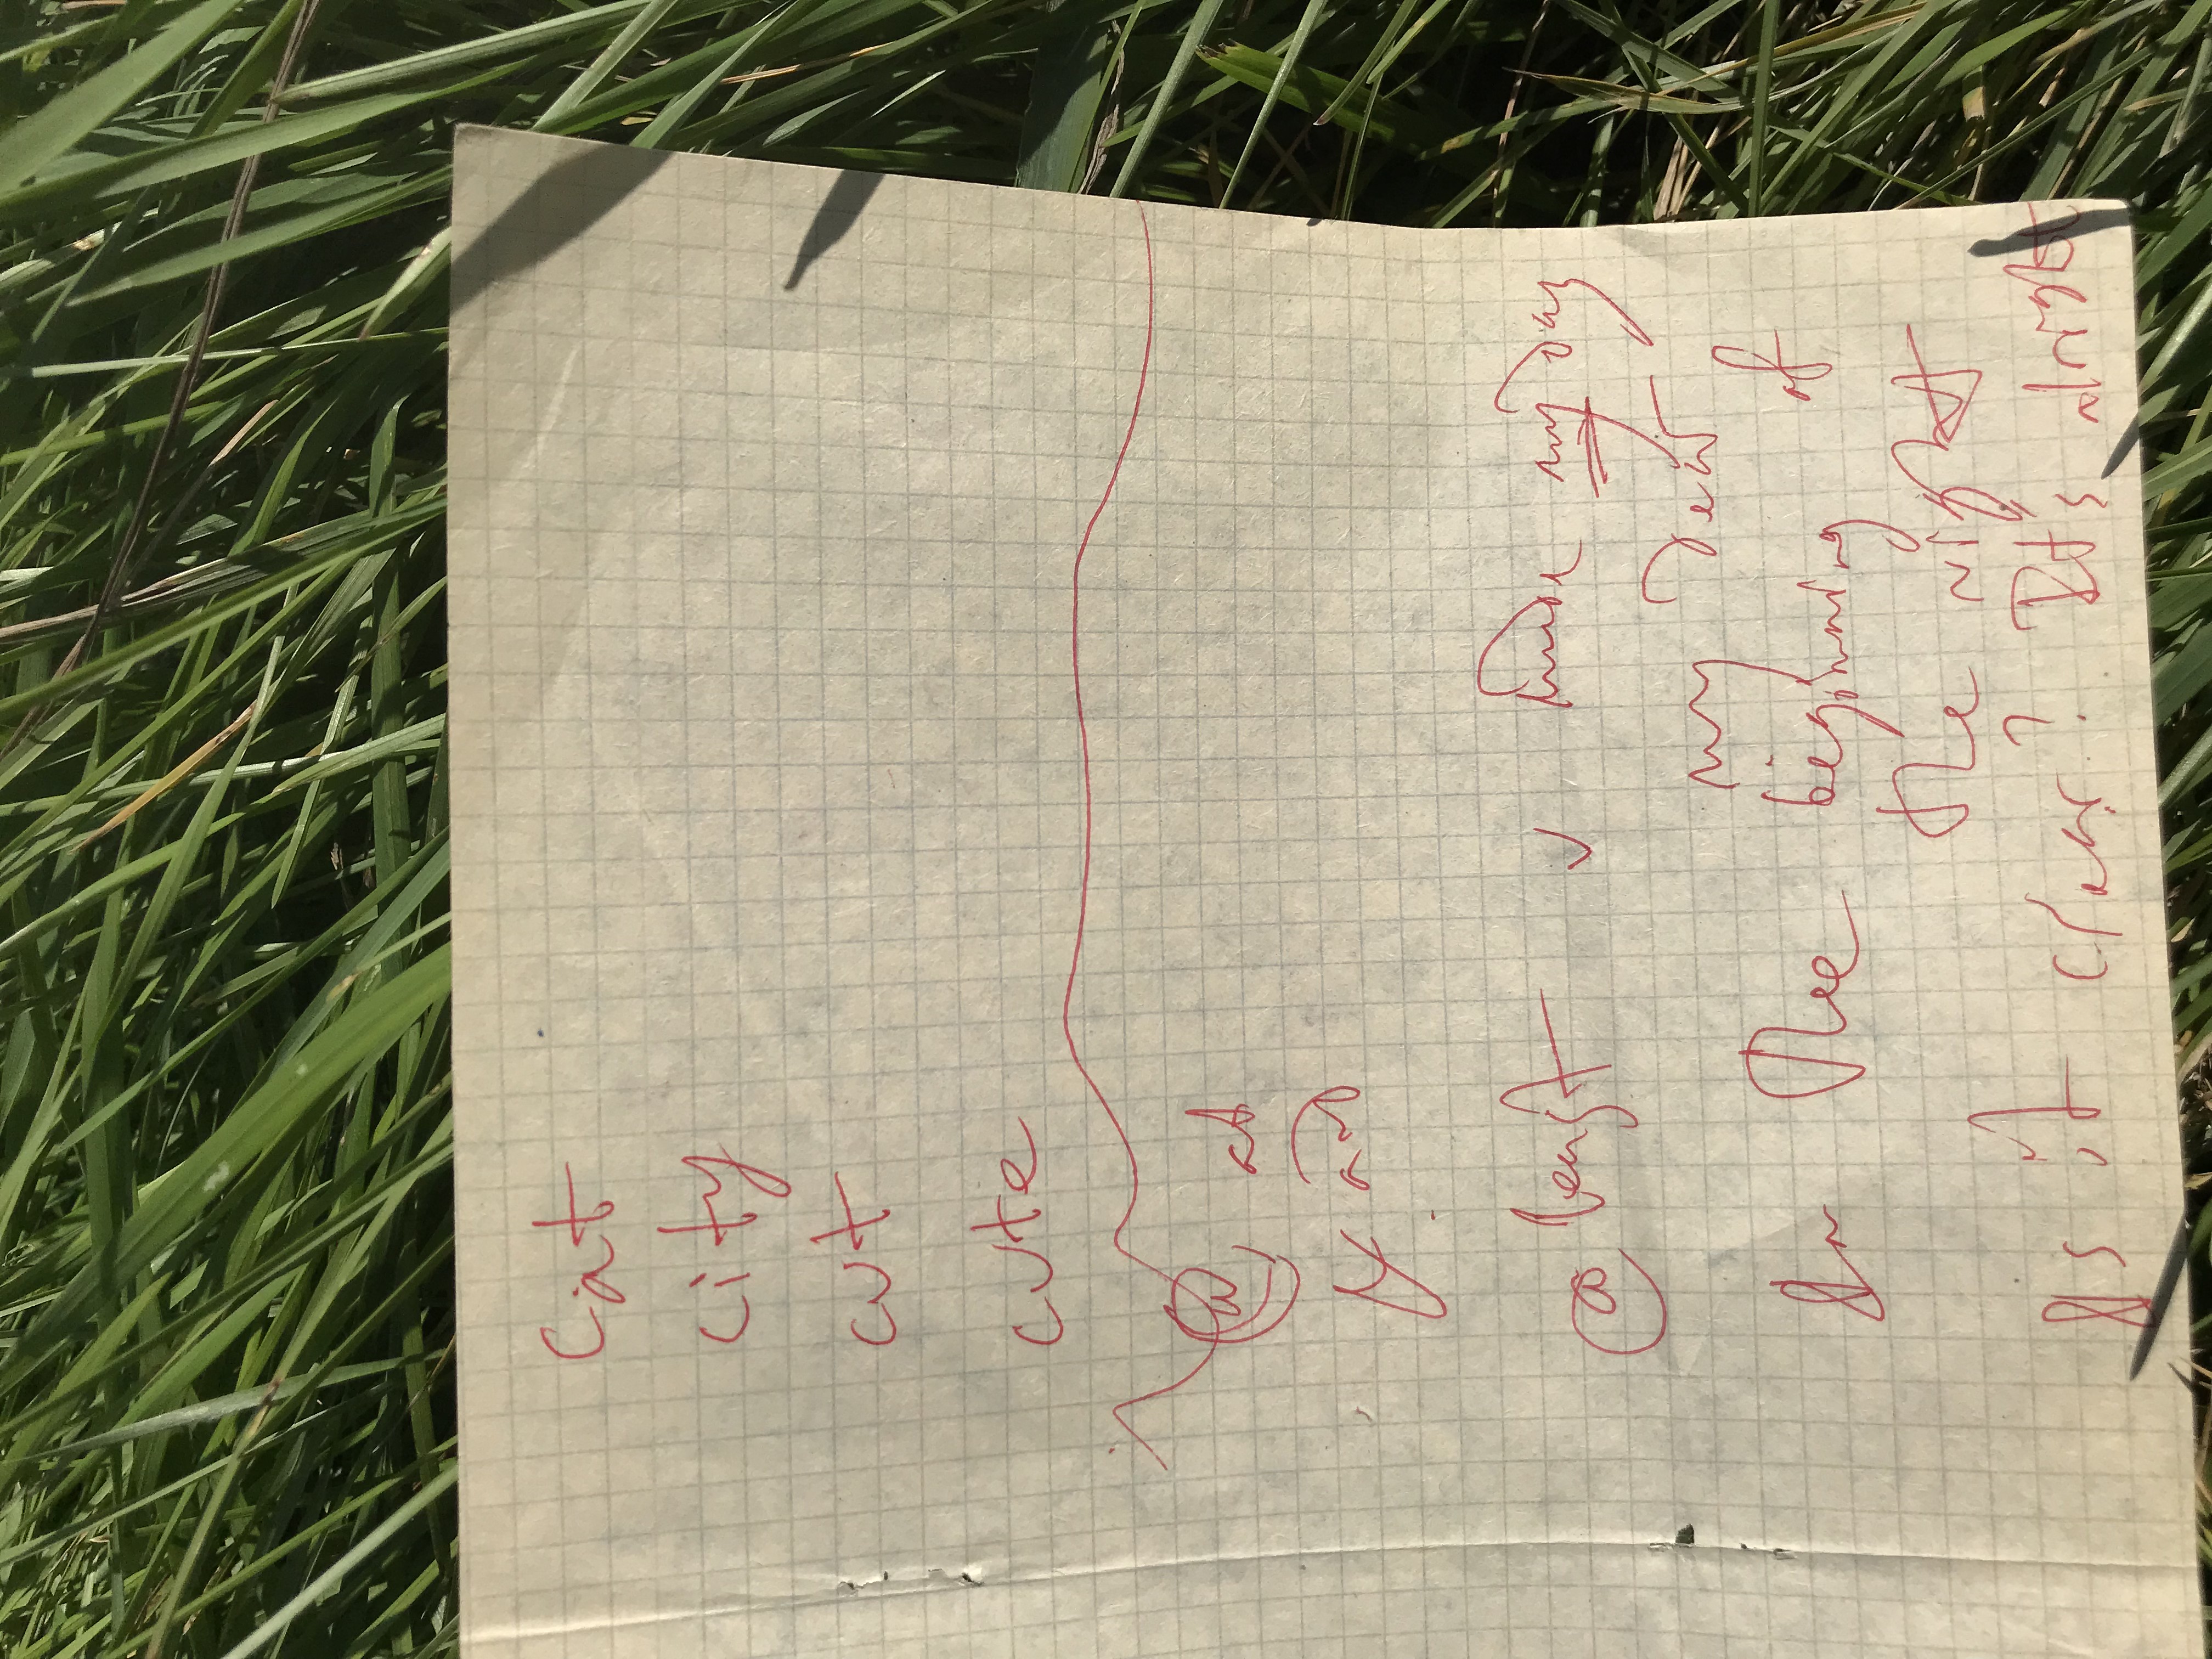 Cat
city
cut
cute
@ at
& and
@ least v made my day
my dear
In the beginning of
the night
Is it clear? It's alright